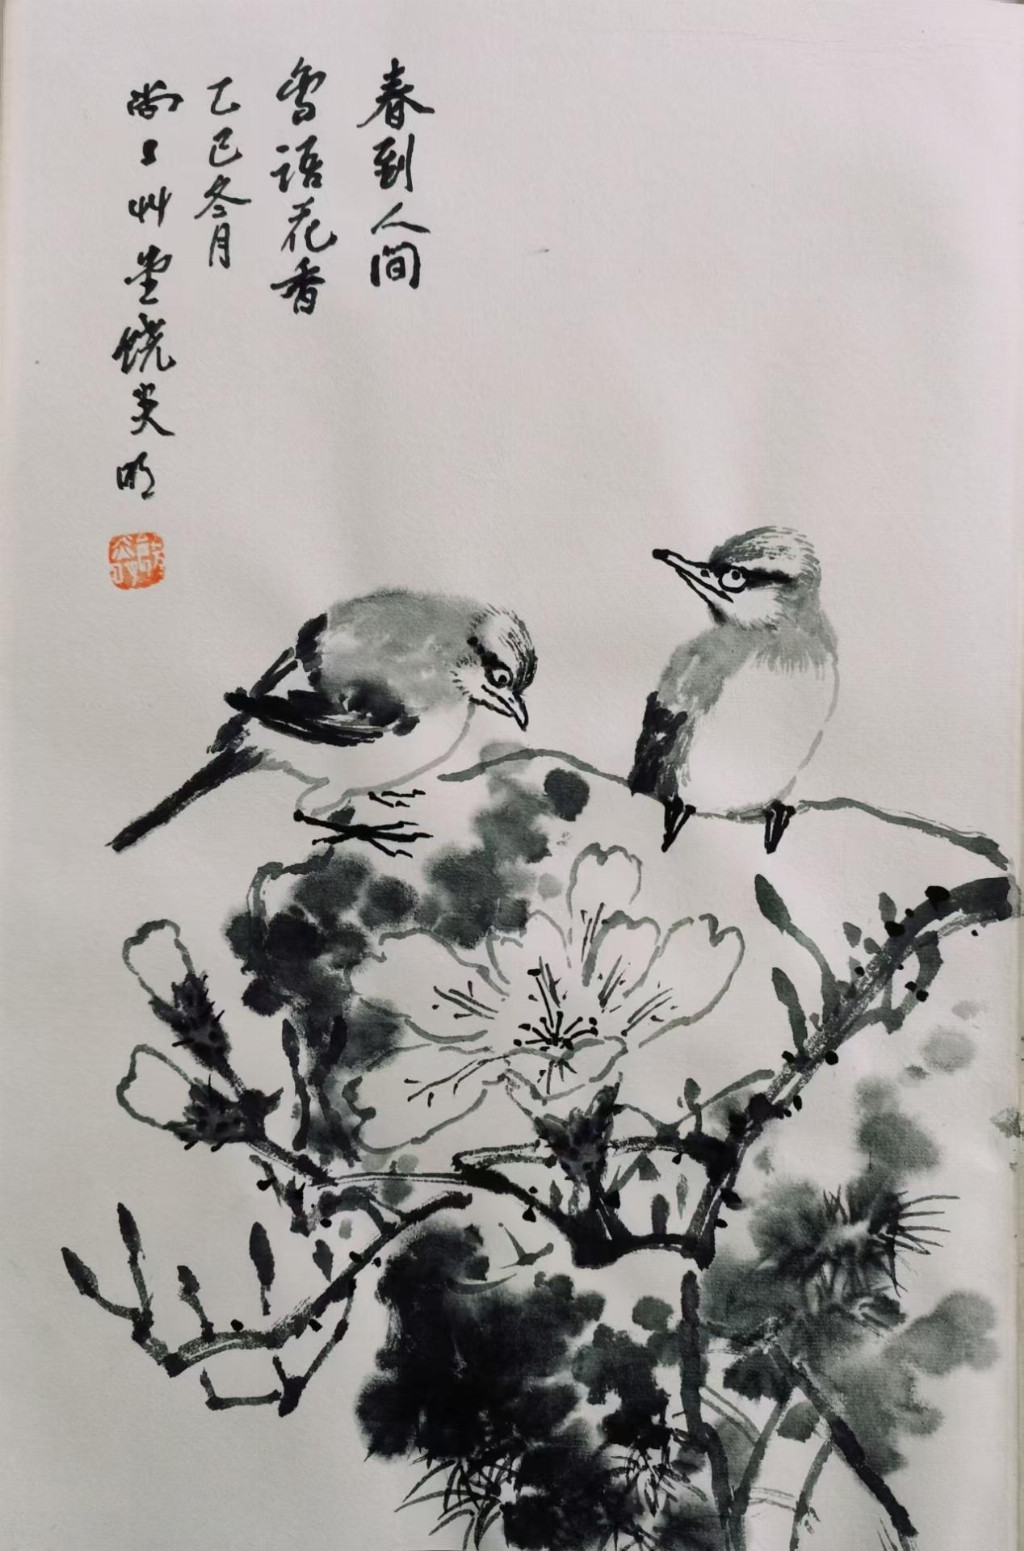 春到人间
鸟语花香
乙巳冬月
尚工艸堂饶炎明